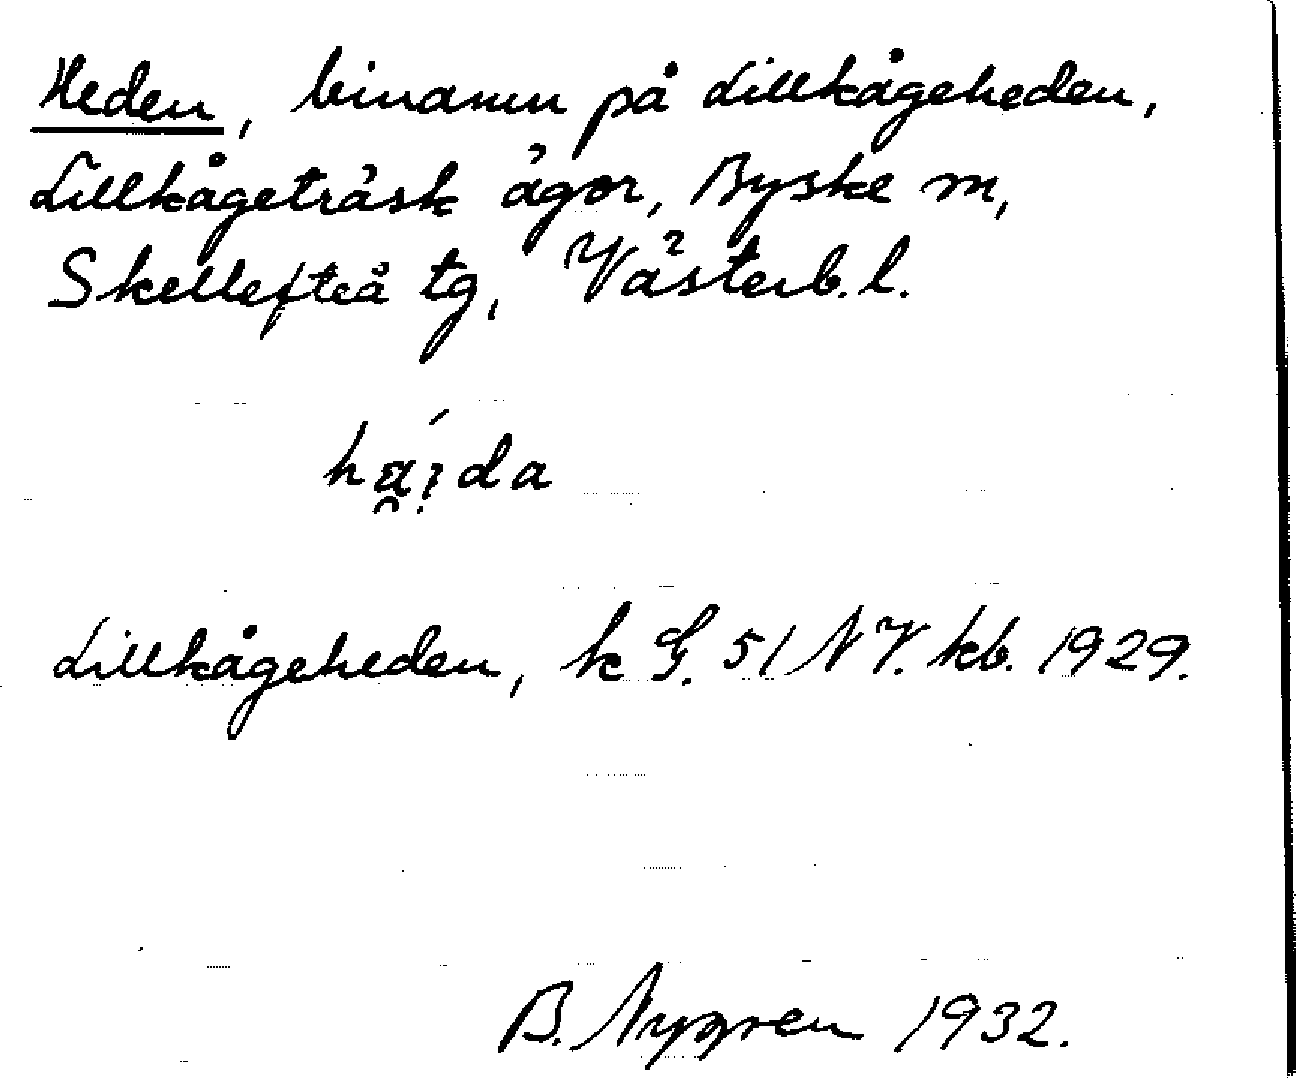 Heden, binamn på Lillkågeheden,
Lillkågeträsk ägor, Byske sn,
Skellefteå tg, Västerb. l.
Lillkågeheden, k G. 51 NV. kb. 1929.
B. Nygren 1932.